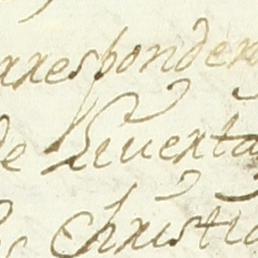 rresponder
de Liuerta
s Christia